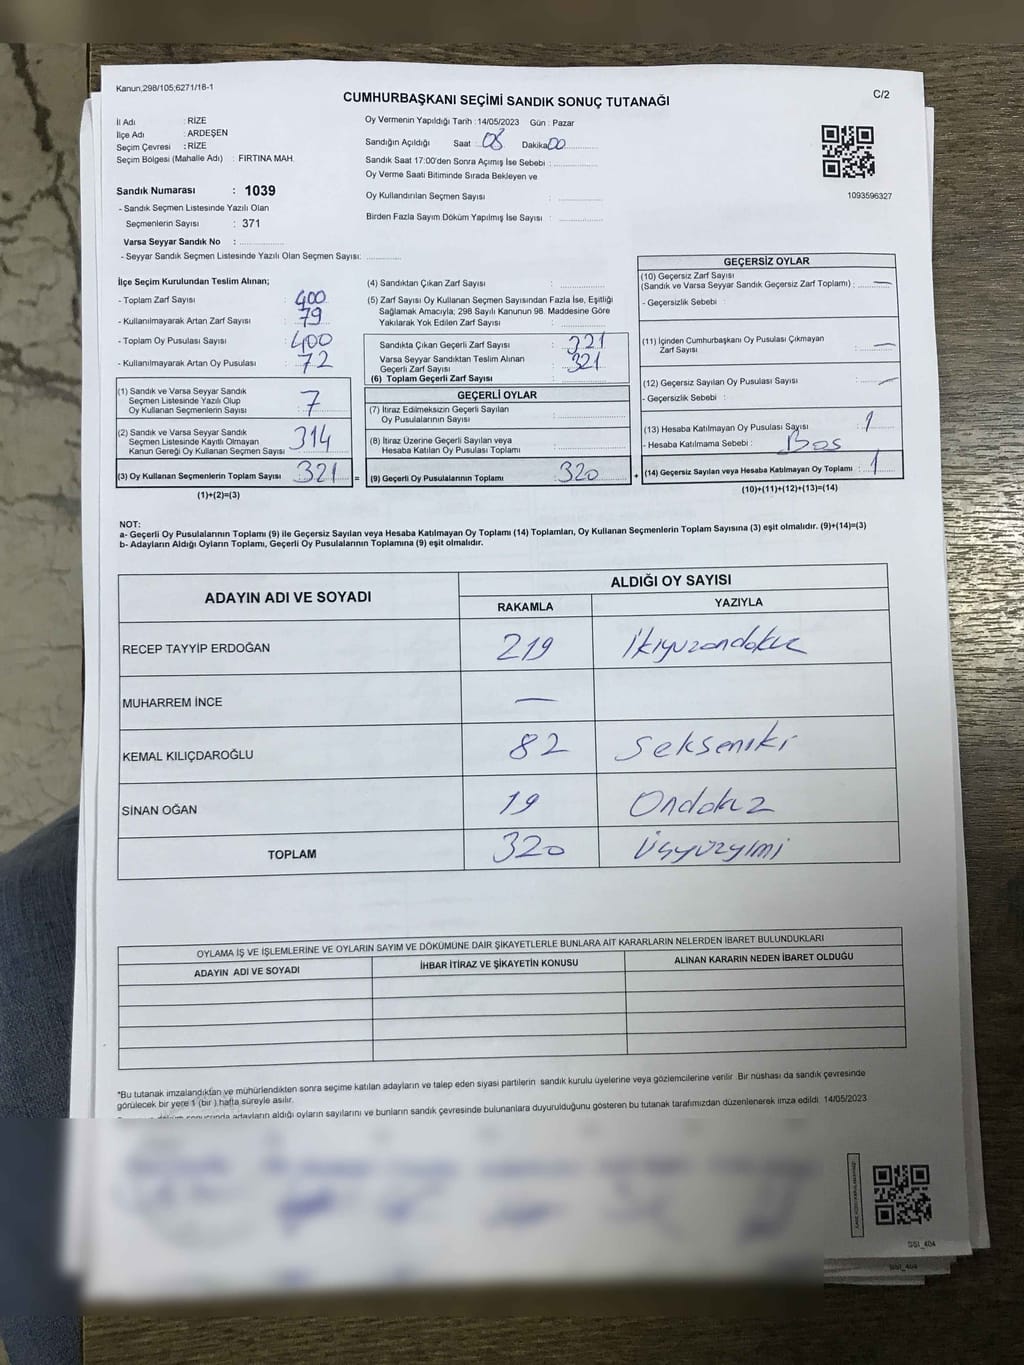 Kanun;298/105;6271/18-1
C/2
CUMHURBAŞKANI SEÇİMİ SANDIK SONUÇ TUTANAĞI
İl Adı : RİZE
İlçe Adı : ARDEŞEN
Seçim Çevresi : RİZE
Seçim Bölgesi (Mahalle Adı) : FIRTINA MAH.
Sandık Numarası : 1039
- Sandık Seçmen Listesinde Yazılı Olan
Seçmenlerin Sayısı : 371
Varsa Seyyar Sandık No :
- Seyyar Sandık Seçmen Listesinde Yazılı Olan Seçmen Sayısı:
Oy Vermenin Yapıldığı Tarih : 14/05/2023 Gün : Pazar
Sandığın Açıldığı Saat 08 Dakika 00
Sandık Saat 17:00'den Sonra Açımış İse Sebebi :
Oy Verme Saati Bitiminde Sırada Bekleyen ve
Oy Kullandırılan Seçmen Sayısı :
Birden Fazla Sayım Döküm Yapılmış İse Sayısı :
1093596327
İlçe Seçim Kurulundan Teslim Alınan;
- Toplam Zarf Sayısı : 400
- Kullanılmayarak Artan Zarf Sayısı : 79
- Toplam Oy Pusulası Sayısı : 400
- Kullanılmayarak Artan Oy Pusulası : 72
(1) Sandık ve Varsa Seyyar Sandık
Seçmen Listesinde Yazılı Olup
Oy Kullanan Seçmenlerin Sayısı : 7
(2) Sandık ve Varsa Seyyar Sandık
Seçmen Listesinde Kayıtlı Olmayan
Kanun Gereği Oy Kullanan Seçmen Sayısı : 314
(3) Oy Kullanan Seçmenlerin Toplam Sayısı : 321
(1)+(2)=(3)
(4) Sandıktan Çıkan Zarf Sayısı :
(5) Zarf Sayısı Oy Kullanan Seçmen Sayısından Fazla İse, Eşitliği
Sağlamak Amacıyla; 298 Sayılı Kanunun 98. Maddesine Göre
Yakılarak Yok Edilen Zarf Sayısı :
Sandıkta Çıkan Geçerli Zarf Sayısı : 321
Varsa Seyyar Sandıktan Teslim Alınan
Geçerli Zarf Sayısı : 321
(6) Toplam Geçerli Zarf Sayısı :
GEÇERLİ OYLAR
(7) İtiraz Edilmeksizin Geçerli Sayılan
Oy Pusulalarının Sayısı :
(8) İtiraz Üzerine Geçerli Sayılan veya
Hesaba Katılan Oy Pusulası Toplamı :
= (9) Geçerli Oy Pusulalarının Toplamı : 320
GEÇERSİZ OYLAR
(10) Geçersiz Zarf Sayısı
(Sandık ve Varsa Seyyar Sandık Geçersiz Zarf Toplamı) : —
- Geçersizlik Sebebi :
(11) İçinden Cumhurbaşkanı Oy Pusulası Çıkmayan
Zarf Sayısı : —
(12) Geçersiz Sayılan Oy Pusulası Sayısı : —
- Geçersizlik Sebebi :
(13) Hesaba Katılmayan Oy Pusulası Sayısı : 1
- Hesaba Katılmama Sebebi : Bos
+ (14) Geçersiz Sayılan veya Hesaba Katılmayan Oy Toplamı : 1
(10)+(11)+(12)+(13)=(14)
NOT:
a- Geçerli Oy Pusulalarının Toplamı (9) ile Geçersiz Sayılan veya Hesaba Katılmayan Oy Toplamı (14) Toplamları, Oy Kullanan Seçmenlerin Toplam Sayısına (3) eşit olmalıdır. (9)+(14)=(3)
b- Adayların Aldığı Oyların Toplamı, Geçerli Oy Pusulalarının Toplamına (9) eşit olmalıdır.
ADAYIN ADI VE SOYADI
ALDIĞI OY SAYISI
RAKAMLA YAZIYLA
RECEP TAYYİP ERDOĞAN 219 İkiyüzondokuz
MUHARREM İNCE —
KEMAL KILIÇDAROĞLU 82 Sekseniki
SİNAN OĞAN 19 Ondokuz
TOPLAM 320 Üçyüzyirmi
OYLAMA İŞ VE İŞLEMLERİNE VE OYLARIN SAYIM VE DÖKÜMÜNE DAİR ŞİKAYETLERLE BUNLARA AİT KARARLARIN NELERDEN İBARET BULUNDUKLARI
ADAYIN ADI VE SOYADI İHBAR İTİRAZ VE ŞİKAYETİN KONUSU ALINAN KARARIN NEDEN İBARET OLDUĞU
*Bu tutanak imzalandıktan ve mühürlendikten sonra seçime katılan adayların ve talep eden siyasi partilerin sandık kurulu üyelerine veya gözlemcilerine verilir. Bir nüshası da sandık çevresinde
görülecek bir yere 1 (bir ) hafta süreyle asılır.
sonucunda adayların aldığı oyların sayılarını ve bunların sandık çevresinde bulunanlara duyurulduğunu gösteren bu tutanak tarafımızdan düzenlenerek imza edildi. 14/05/2023